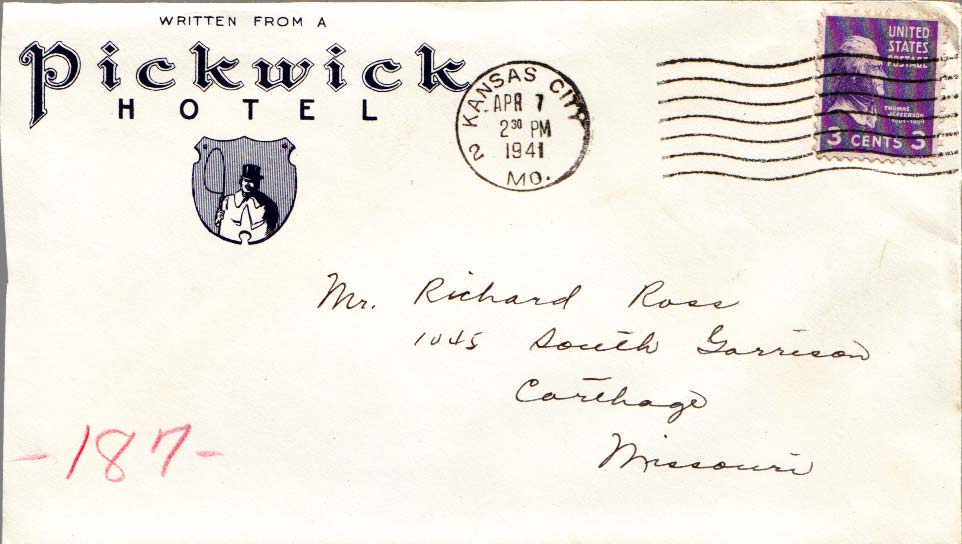 WRITTEN FROM A
Pickwick
HOTEL
2 KANSAS CITY
APR 7
2 30 PM
1941
MO.
UNITED
STATES
POSTAGE
THOMAS
JEFFERSON
3 CENTS 3
Mr. Richard Ross
1045 South Garrison
Carthage
Missouri
-187-